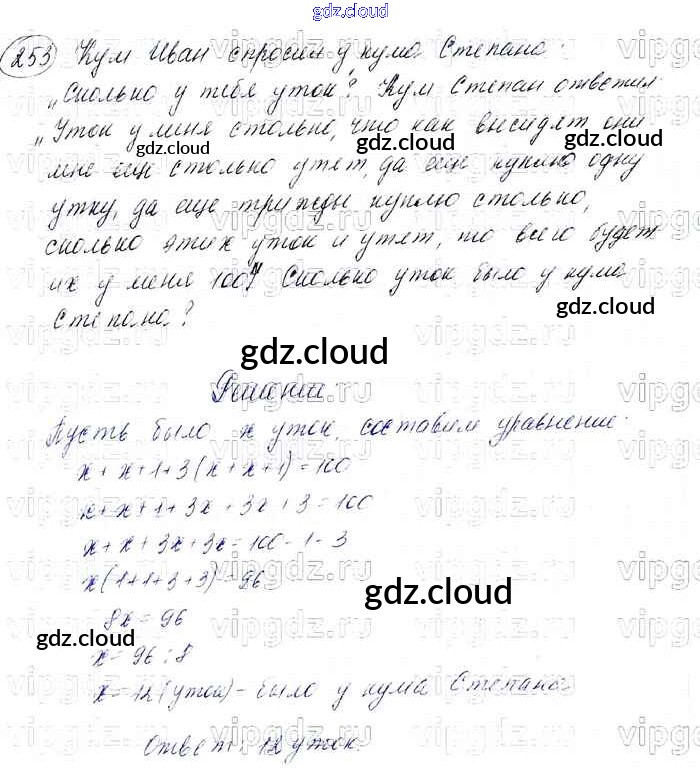 gdz.cloud
253 Кум Иван спросил у кума Степана:
„Сколько у тебя уток? Кум Степан ответил
„Уток у меня столько, что как высидят они
gdz.cloud
gdz.cloud
мне ещё столько утят, да ещё куплю одну
утку, да еще трижды куплю столько,
сколько этих уток и утят, то всего будет
их у меня 100" Сколько уток было у кума
Степана?
gdz.cloud
gdz.cloud
Решение:
Пусть было x уток, составим уравнение:
x + x + 1 + 3(x + x + 1) = 100
x + x + 1 + 3x + 3x + 3 = 100
x + x + 3x + 3x = 100 - 1 - 3
x(1 + 1 + 3 + 3) = 96
gdz.cloud
8x = 96
gdz.cloud
x = 96 : 8
x = 12 (уток) - было у кума Степана.
Ответ: 12 уток.